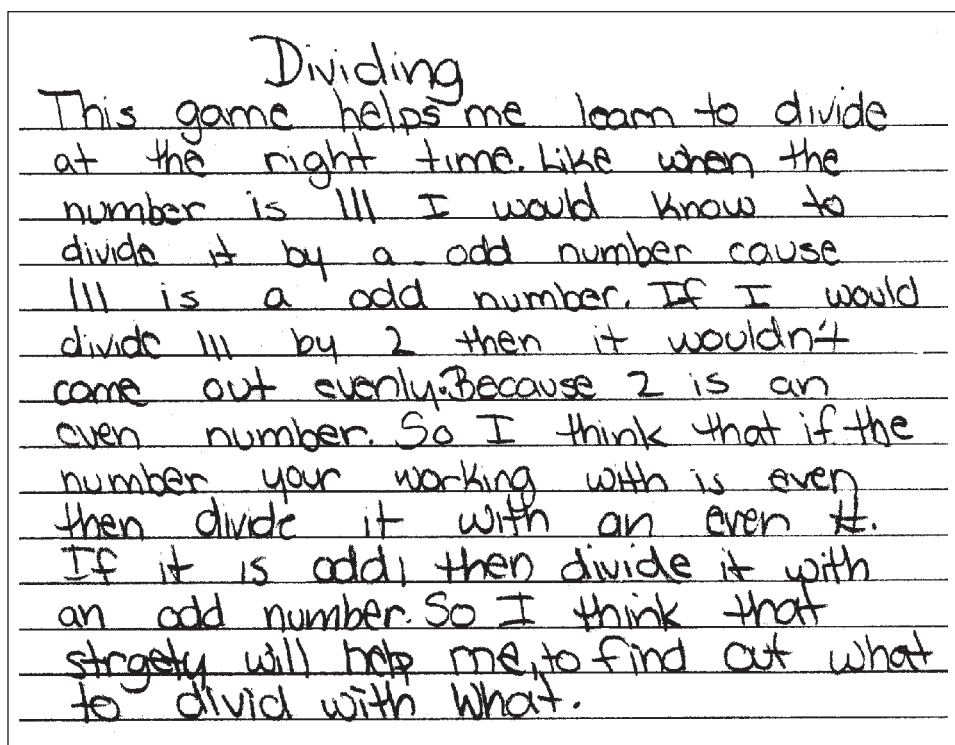 Dividing
This game helps me learn to divide
at the right time. Like when the
number is 111 I would know to
divide it by a odd number cause
111 is a odd number. If I would
divide 111 by 2 then it wouldn't
come out evenly. Because 2 is an
even number. So I think that if the
number your working with is even
then divide it with an even #.
If it is odd, then divide it with
an odd number. So I think that
strgety will help me, to find out what
to divid with what.